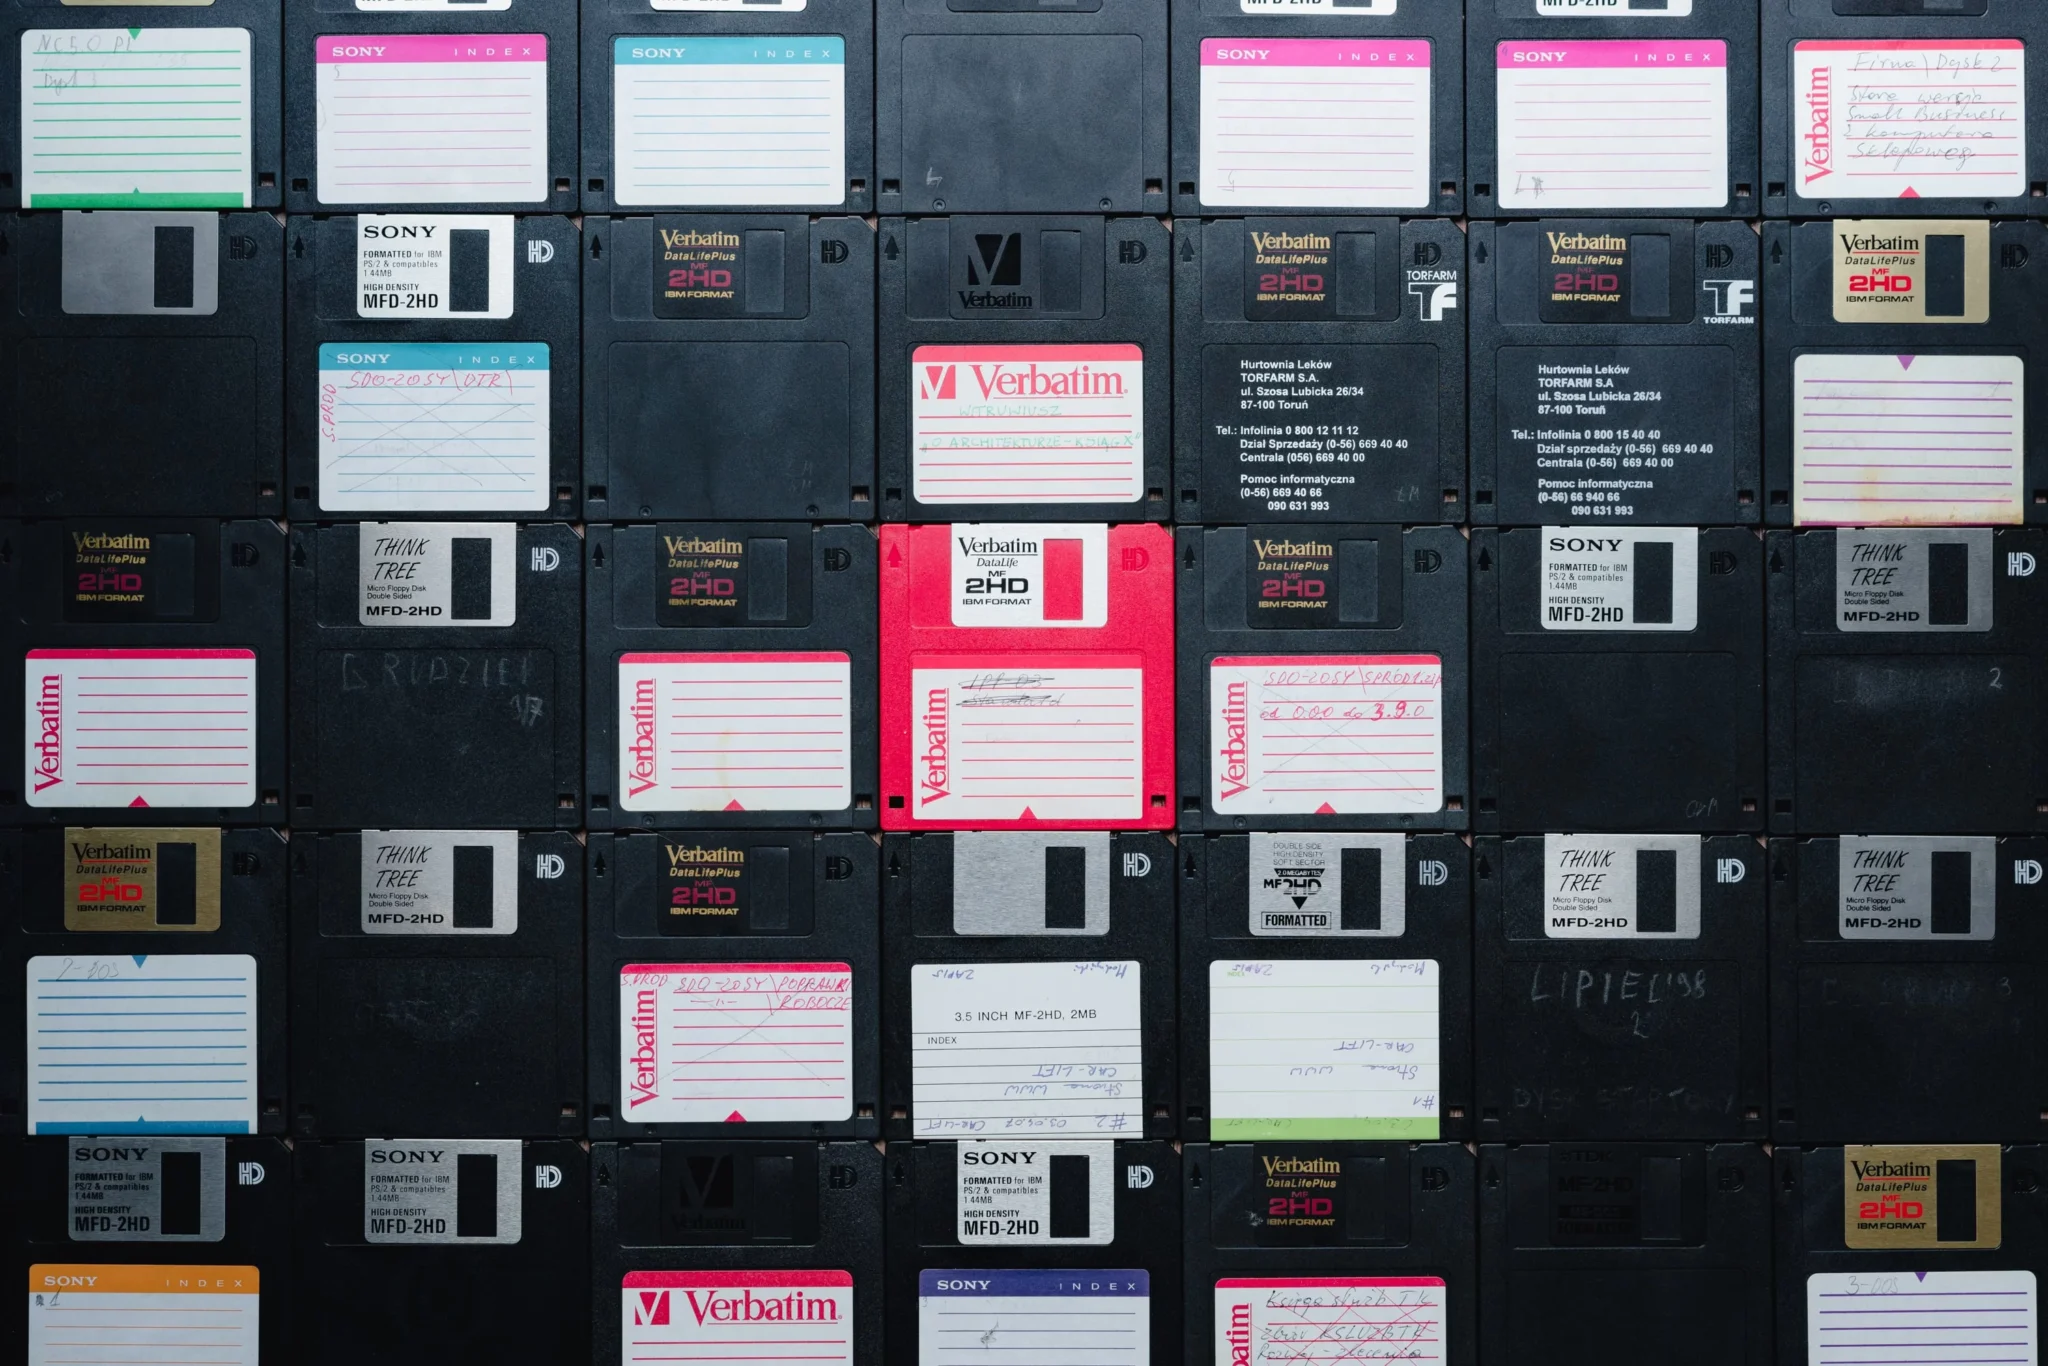 NC 5.0 PL
SONY INDEX
5
SONY INDEX
4
SONY INDEX
SONY INDEX
Verbatim
Firma \ Dysk 2
Stara wersja
Small Business
z komputera
sklepowego
SONY
FORMATTED for IBM
PS/2 & compatibles
1.44MB
HIGH DENSITY
MFD-2HD
HD
SONY INDEX
S.PROD
SDO-20SY\DTR\
Verbatim
DataLifePlus
MF
2HD
IBM FORMAT
HD
Verbatim
HD
Verbatim
WITRUWIUSZ
"O ARCHITEKTURZE - KSIĄG X"
Verbatim
DataLifePlus
MF
2HD
IBM FORMAT
HD
TORFARM
TF
Hurtownia Leków
TORFARM S.A.
ul. Szosa Lubicka 26/34
87-100 Toruń
Tel.: Infolinia 0 800 12 11 12
Dział Sprzedaży (0-56) 669 40 40
Centrala (056) 669 40 00
Pomoc informatyczna
(0-56) 669 40 66
090 631 993
Verbatim
DataLifePlus
MF
2HD
IBM FORMAT
HD
TF
TORFARM
Hurtownia Leków
TORFARM S.A
ul. Szosa Lubicka 26/34
87-100 Toruń
Tel.: Infolinia 0 800 15 40 40
Dział sprzedaży (0-56) 669 40 40
Centrala (0-56) 669 40 00
Pomoc informatyczna
(0-56) 66 940 66
090 631 993
Verbatim
DataLifePlus
MF
2HD
IBM FORMAT
HD
Verbatim
DataLifePlus
MF
2HD
IBM FORMAT
HD
Verbatim
THINK
TREE
Micro Floppy Disk
Double Sided
MFD-2HD
HD
GRUDZIEŃ
Verbatim
DataLifePlus
MF
2HD
IBM FORMAT
HD
Verbatim
Verbatim
DataLife
MF
2HD
IBM FORMAT
HD
Verbatim
Verbatim
DataLifePlus
MF
2HD
IBM FORMAT
HD
Verbatim
SDO-20SY\SPROD1.zip
od 0.00 do 3.9.0
SONY
FORMATTED for IBM
PS/2 & compatibles
1.44MB
HIGH DENSITY
MFD-2HD
HD
THINK
TREE
Micro Floppy Disk
Double Sided
MFD-2HD
HD
2
Verbatim
DataLifePlus
MF
2HD
IBM FORMAT
HD
THINK
TREE
Micro Floppy Disk
Double Sided
MFD-2HD
HD
Verbatim
DataLifePlus
MF
2HD
IBM FORMAT
HD
Verbatim
S.PROD SDO-20SY\POPRAWKI
ROBOCZE
HD
ZAPIS
3.5 INCH MF-2HD, 2MB
INDEX
CAR-LIFT
Strona WWW
#2 03.04.07 CAR-LIFT
DOUBLE SIDE
HIGH DENSITY
SOFT SECTOR
2.0 MEGABYTES
MF2HD
FORMATTED
HD
INDEX
ZAPIS
CAR-LIFT
Strona WWW
#1
THINK
TREE
Micro Floppy Disk
Double Sided
MFD-2HD
HD
LIPIEC'98
2
THINK
TREE
Micro Floppy Disk
Double Sided
MFD-2HD
HD
3
SONY
FORMATTED for IBM
PS/2 & compatibles
1.44MB
HIGH DENSITY
MFD-2HD
HD
SONY INDEX
1
SONY
FORMATTED for IBM
PS/2 & compatibles
1.44MB
HIGH DENSITY
MFD-2HD
HD
Verbatim
HD
Verbatim
SONY
FORMATTED for IBM
PS/2 & compatibles
1.44MB
HIGH DENSITY
MFD-2HD
HD
SONY INDEX
Verbatim
DataLifePlus
MF
2HD
IBM FORMAT
HD
Księga służb TK
zbiór KSLUZBTK
TDK
MF-2HD
Verbatim
DataLifePlus
MF
2HD
IBM FORMAT
3-003